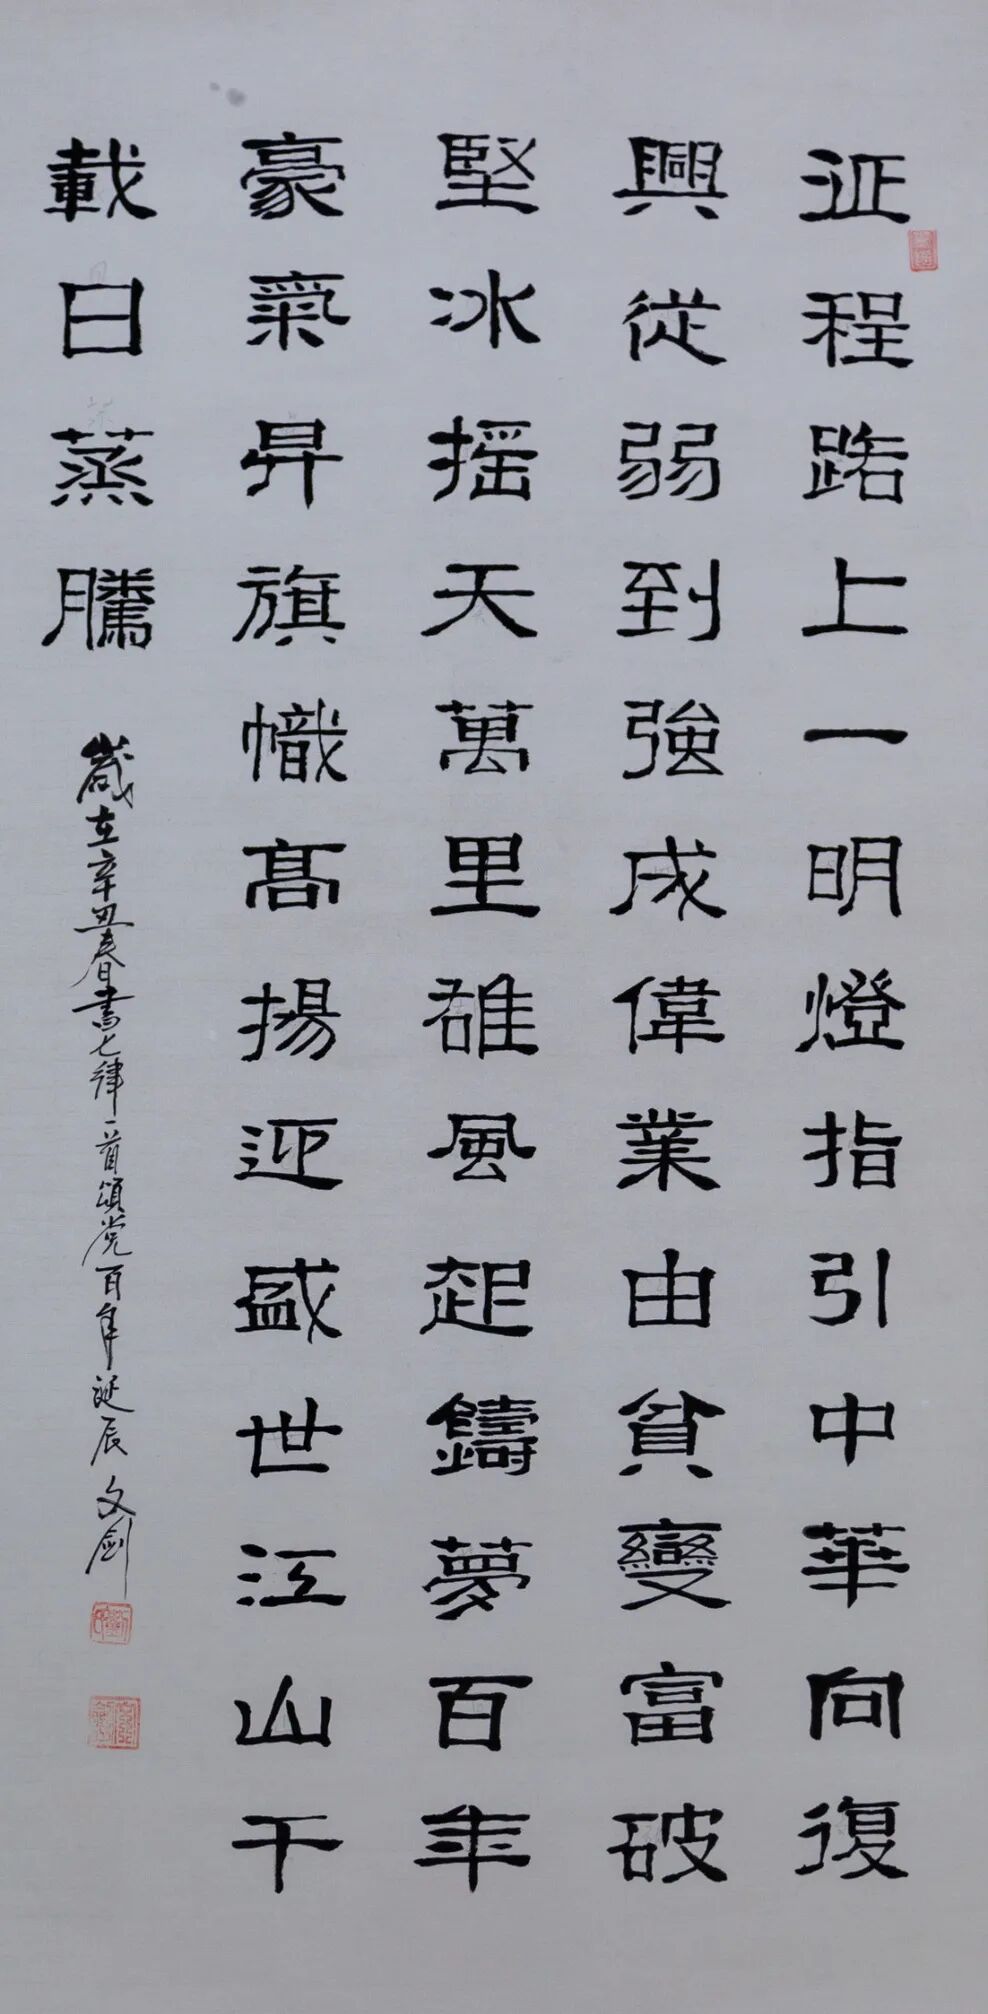 征程路上一明燈指引中華向復
興從弱到強成偉業由貧變富破
堅冰摇天萬里雄風起鑄夢百年
豪氣昇旗幟高揚迎盛世江山千
載日蒸騰
歲在辛丑春書七律一首頌党百年诞辰文剑